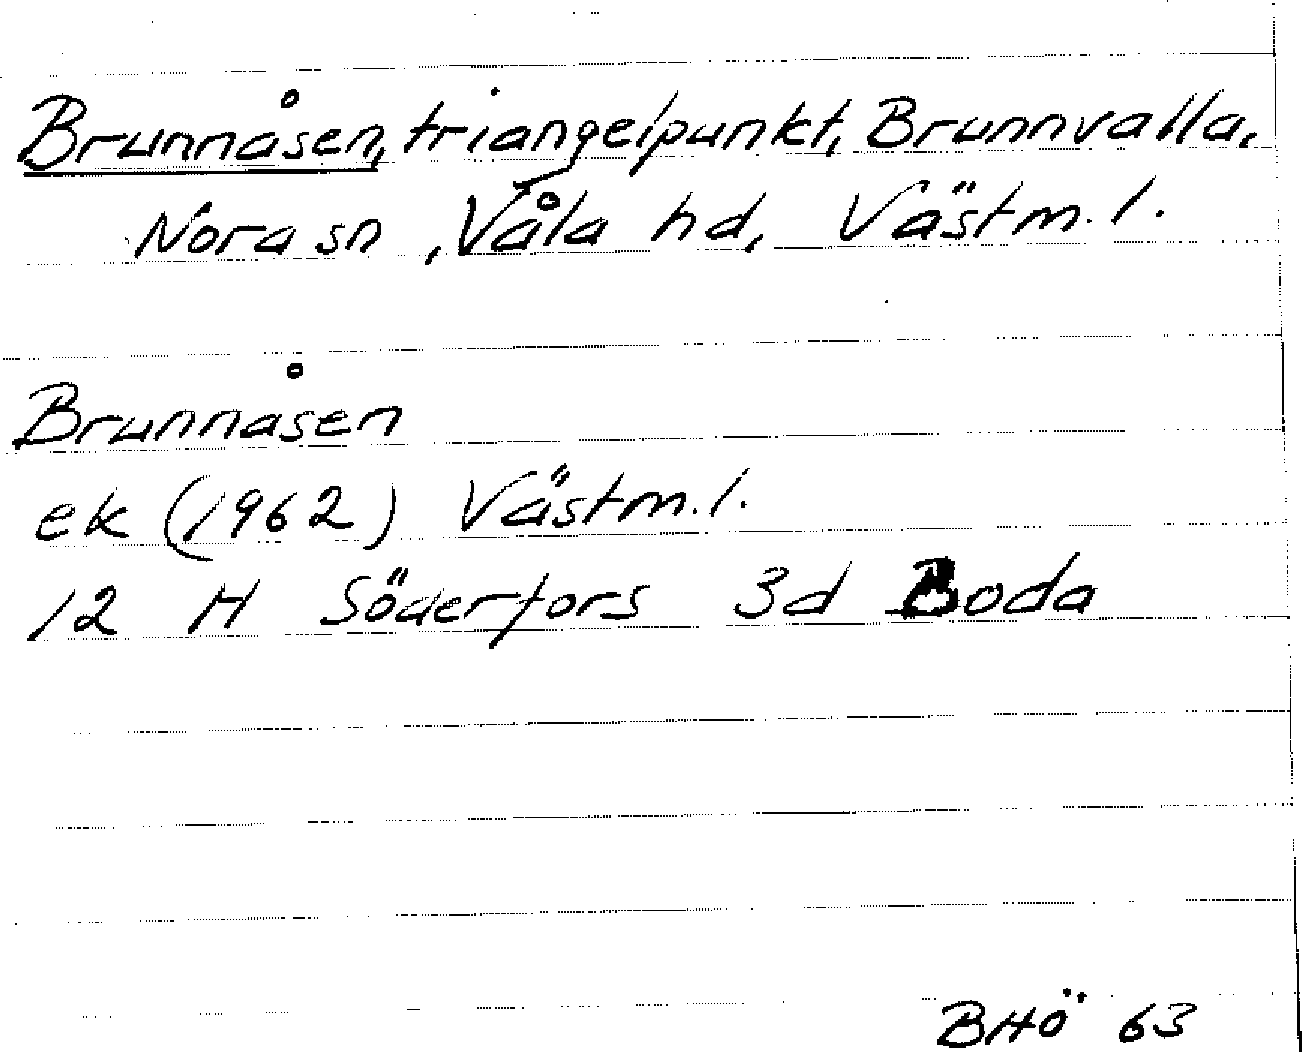 Brunnåsen, triangelpunkt, Brunnvalla,
Nora sn, Våla hd, Västm. l.
Brunnåsen
ek (1962) Västm. l.
12 H Söderfors 3d Boda
BHÖ 63